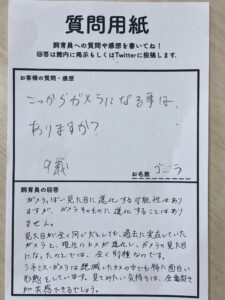 質問用紙
飼育員への質問や感想を書いてね！
回答は館内に掲示もしくはTwitterに投稿します。
お客様の質問・感想
こっからガメラになる事は、
ありますか？
9歳
お名前 ゴジラ
飼育員の回答
ガメラっぽい見た目に進化する可能性はあり
ますが、ガメラそのものに進化することはあり
ません。
見た目が全く同じだとしても、過去に実在していた
ガメラと、現生のカメが進化し、ガメラの見た目
になったのとでは、全く別種なのです。
シネミス・ガメラは絶滅したカメの中でも特に面白い
形態をしています。見てみたい気持ちは、全飼育員
が共感できるでしょう。